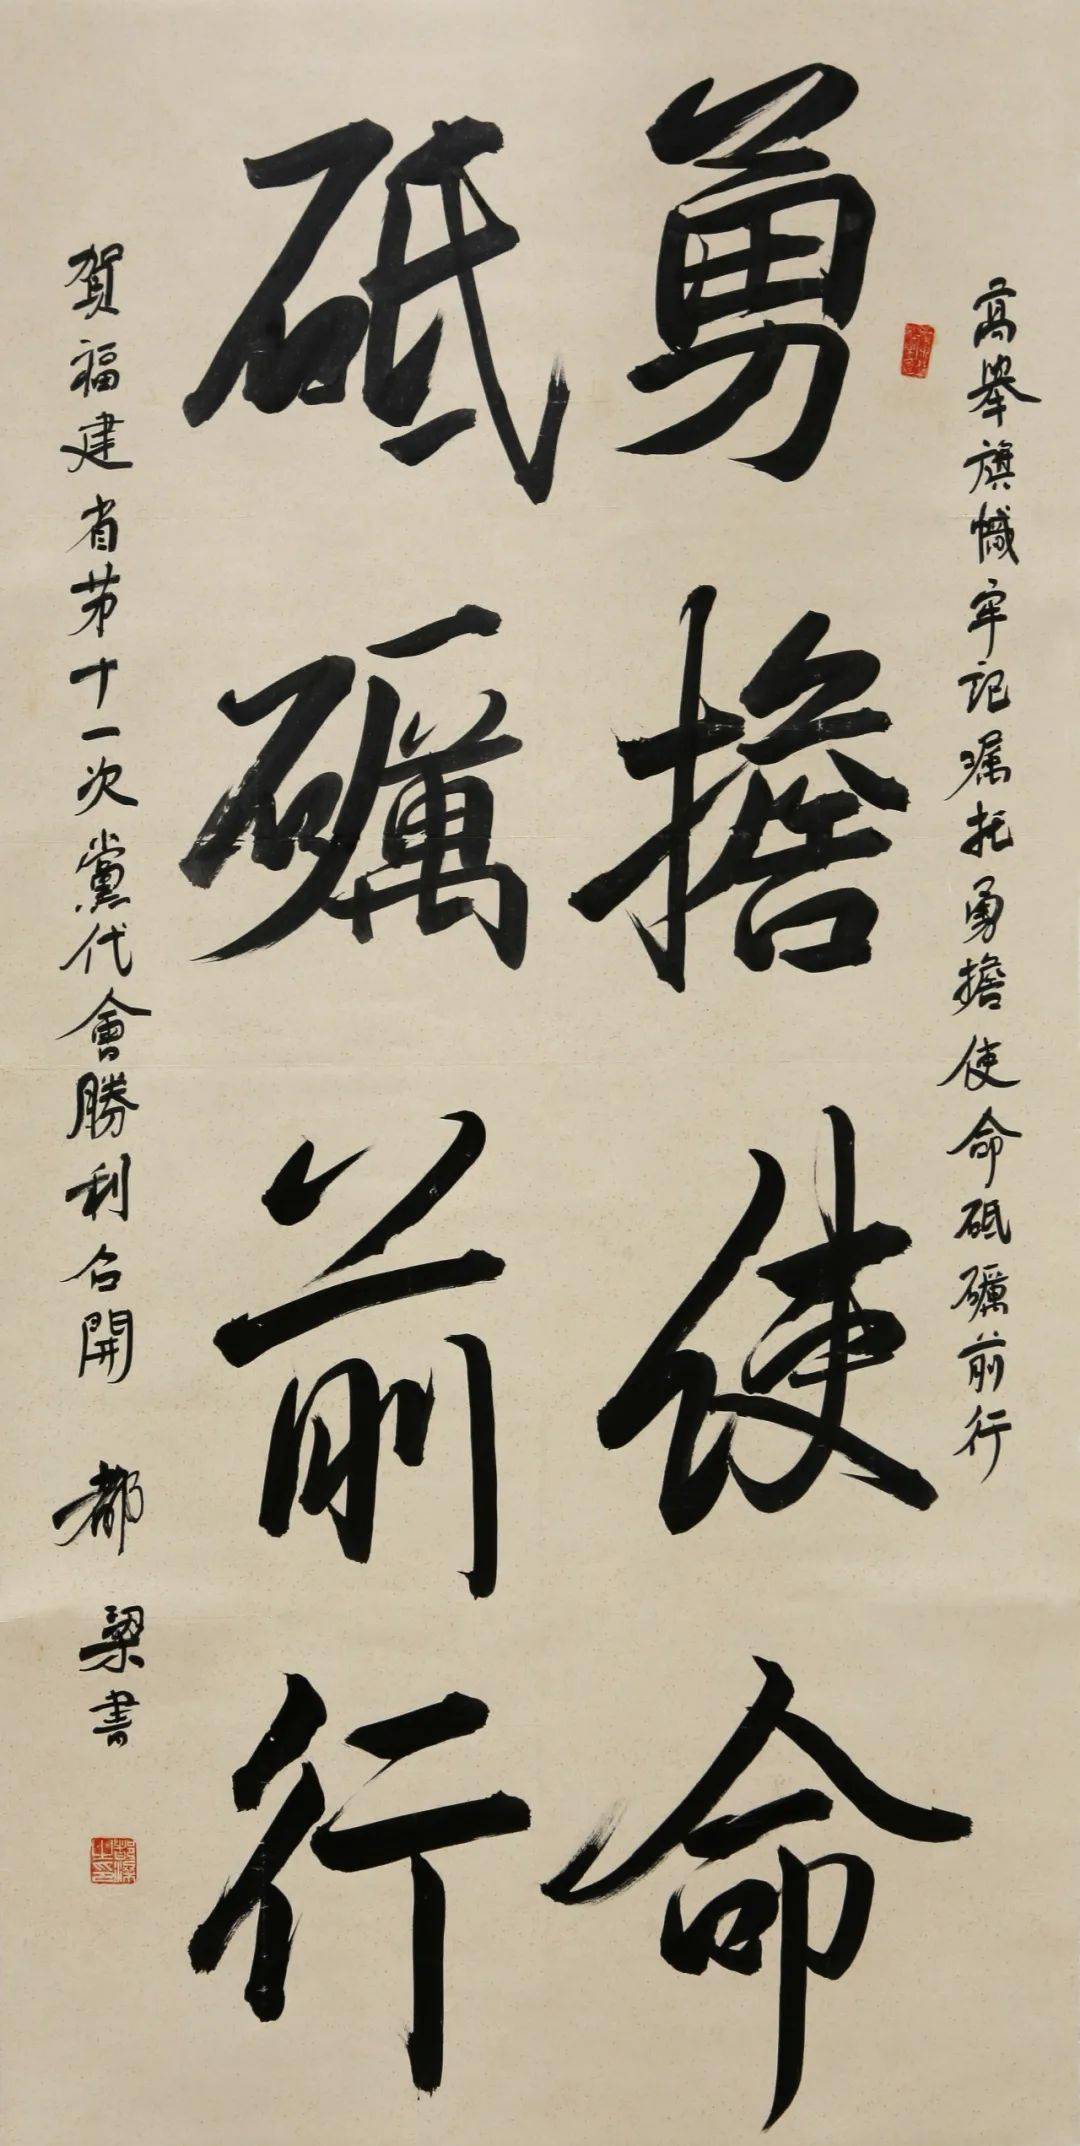 高舉旗幟牢記嘱托勇擔使命砥礪前行
勇擔使命
砥礪前行
賀福建省第十一次黨代會勝利召開 都梁書